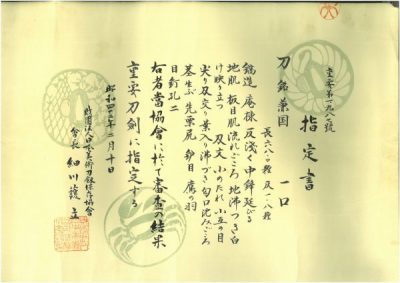 指定書
刀 銘 兼国 一口
鎬造 庵棟 反浅く 中鋒延びる
地肌 板目肌流れごころ 地沸つき白
け映り立つ 刃文 小のたれ 小互の目
尖り刃交り 葉入り 沸づき 匂口沈みごころ
茎生ぶ 先栗尻 鑢目 鷹の羽
目釘孔二
右者当協会に於て審査の結果
重要刀剣に指定する
昭和 年二月十日
財団法人日本美術刀剣保存協会
会長 細川護立